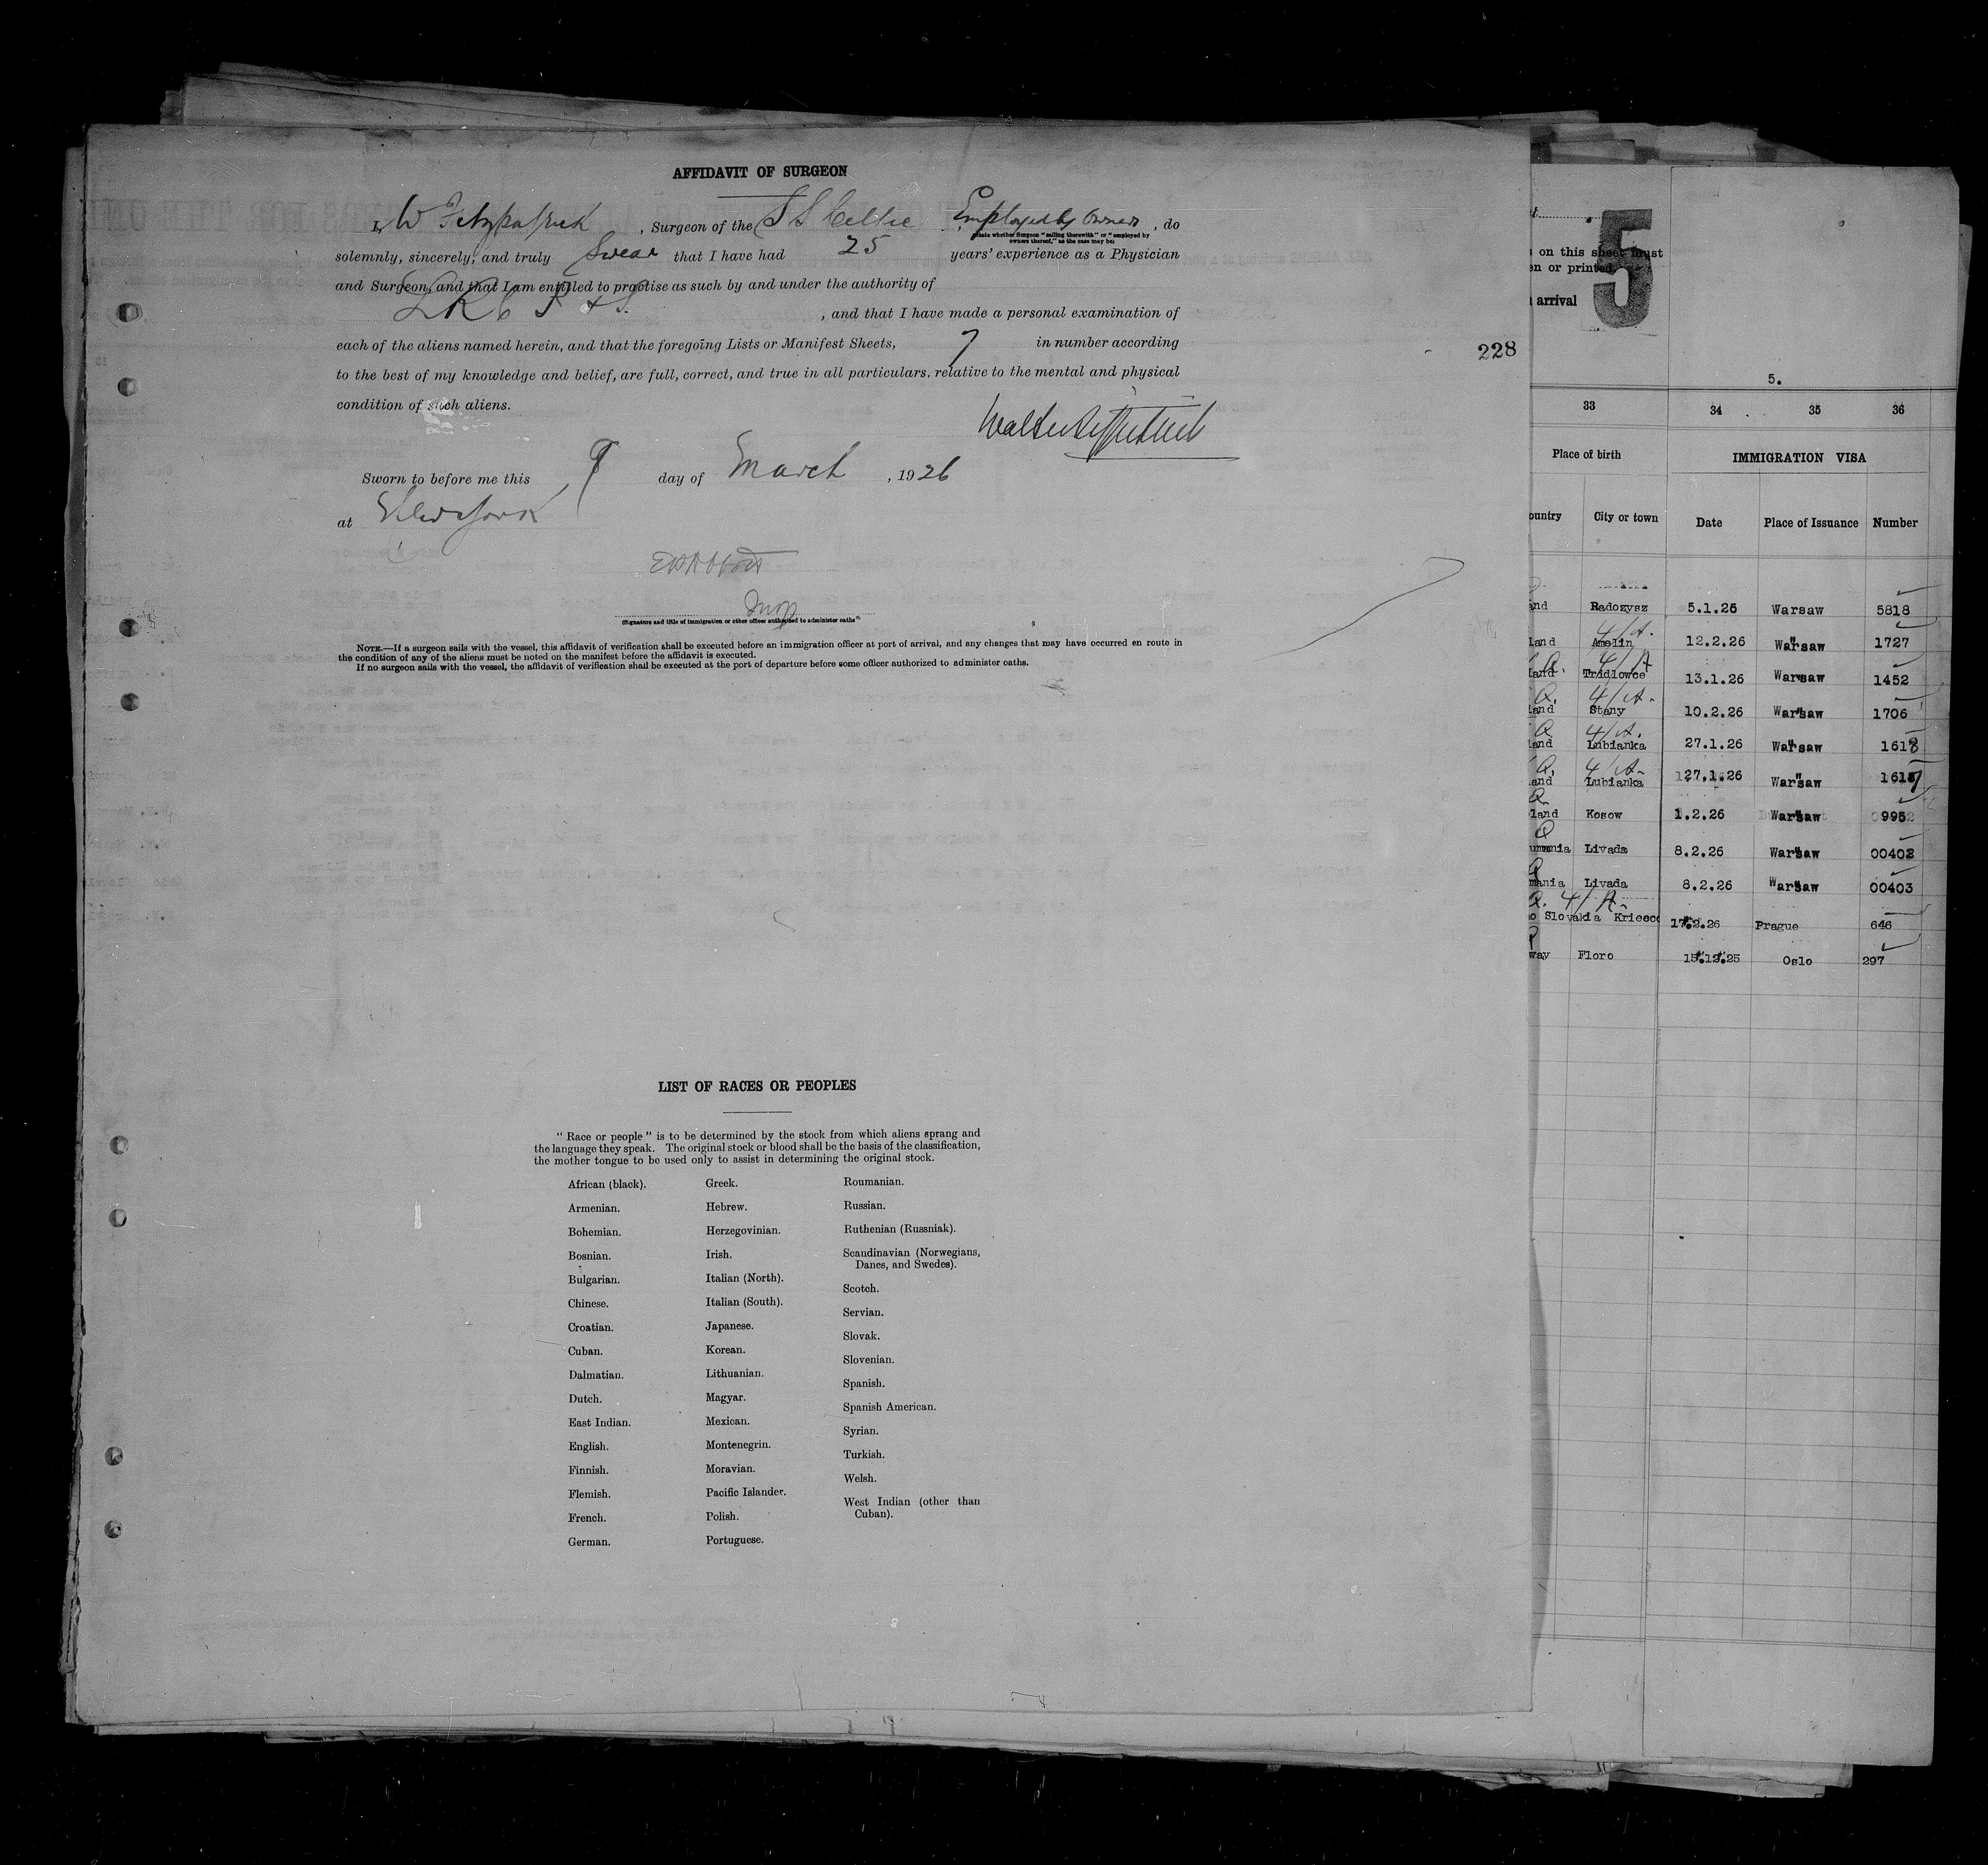 AFFIDAVIT OF SURGEON
I, W Fitzpatrick, Surgeon of the S S Celtic Employed by Owners, do
(State whether Surgeon "sailing therewith" or "employed by
owners thereof," as the case may be)
solemnly, sincerely, and truly Swear that I have had 25 years' experience as a Physician
and Surgeon, and that I am entitled to practise as such by and under the authority of
LRCP & S. , and that I have made a personal examination of
each of the aliens named herein, and that the foregoing Lists or Manifest Sheets, 7 in number according
to the best of my knowledge and belief, are full, correct, and true in all particulars. relative to the mental and physical
condition of such aliens.
Sworn to before me this 9 day of March, 1926
at New York
Insp
(Signature and title of immigration or other officer authorised to administer oaths)
NOTE.—If a surgeon sails with the vessel, this affidavit of verification shall be executed before an immigration officer at port of arrival, and any changes that may have occurred en route in
the condition of any of the aliens must be noted on the manifest before the affidavit is executed.
If no surgeon sails with the vessel, the affidavit of verification shall be executed at the port of departure before some officer authorized to administer oaths.
228
LIST OF RACES OR PEOPLES
"Race or people" is to be determined by the stock from which aliens sprang and
the language they speak. The original stock or blood shall be the basis of the classification,
the mother tongue to be used only to assist in determining the original stock.
African (black).
Armenian.
Bohemian.
Bosnian.
Bulgarian.
Chinese.
Croatian.
Cuban.
Dalmatian.
Dutch.
East Indian.
English.
Finnish.
Flemish.
French.
German.
Greek.
Hebrew.
Herzegovinian.
Irish.
Italian (North).
Italian (South).
Japanese.
Korean.
Lithuanian.
Magyar.
Mexican.
Montenegrin.
Moravian.
Pacific Islander.
Polish.
Portuguese.
Roumanian.
Russian.
Ruthenian (Russniak).
Scandinavian (Norwegians,
Danes, and Swedes).
Scotch.
Servian.
Slovak.
Slovenian.
Spanish.
Spanish American.
Syrian.
Turkish.
Welsh.
West Indian (other than
Cuban).
5
on this sheet must
en or printed
arrival
5.
33 34 35 36
Place of birth IMMIGRATION VISA
ountry City or town Date Place of Issuance Number
and Radozysz 5.1.26 Warsaw 5818
4/A.
land Amelin 12.2.26 Warsaw 1727
Q. 4/A
land Tridlowce 13.1.26 Warsaw 1452
Q. 4/A.
land Stany 10.2.26 Warsaw 1706
Q 4/A.
land Lubianka 27.1.26 Warsaw 1618
Q. 4/A.
land Lubianka 27.1.26 Warsaw 1617
Q
land Kosow 1.2.26 Warsaw 995
Q
umania Livada 8.2.26 Warsaw 00402
Q
mania Livada 8.2.26 Warsaw 00403
Q. 4/A.
o Slovakia Kriesco 17.2.26 Prague 646
Q
way Floro 15.12.25 Oslo 297